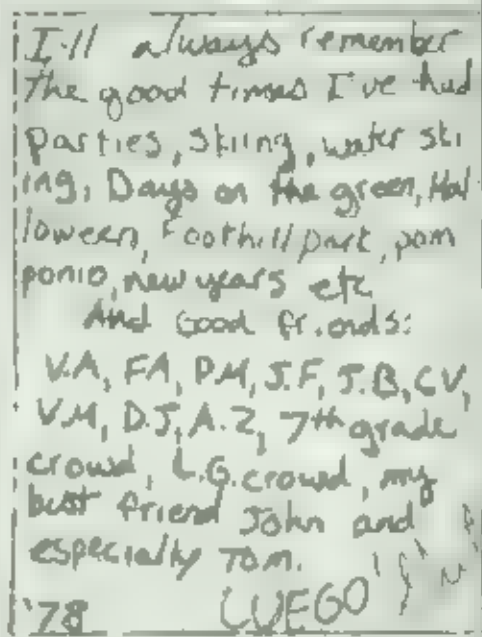 I'll always remember
the good times I've had
parties, skiing, water ski
ing, Days on the green, Hal
loween, Foothill park, pom
ponio, new years etc
And Good friends:
V.A, FA, D.M, J.F, J.B, CV,
V.M, D.J, A.Z, 7th grade
crowd, L.G. crowd, my
best friend John and
especially Tom.
'78 LUEGO